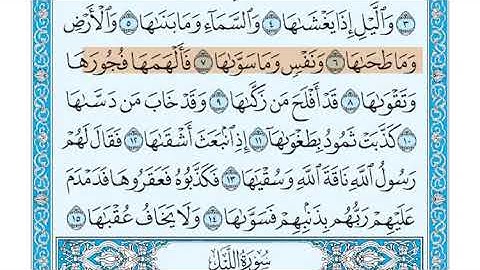 ٣ وَٱلَّيْلِ إِذَا يَغْشَىٰهَا ٤ وَٱلسَّمَآءِ وَمَا بَنَىٰهَا ٥ وَٱلْأَرْضِ
وَمَا طَحَىٰهَا ٦ وَنَفْسٍ وَمَا سَوَّىٰهَا ٧ فَأَلْهَمَهَا فُجُورَهَا
وَتَقْوَىٰهَا ٨ قَدْ أَفْلَحَ مَن زَكَّىٰهَا ٩ وَقَدْ خَابَ مَن دَسَّىٰهَا
١٠ كَذَّبَتْ ثَمُودُ بِطَغْوَىٰهَآ ١١ إِذِ ٱنۢبَعَثَ أَشْقَىٰهَا ١٢ فَقَالَ لَهُمْ
رَسُولُ ٱللَّهِ نَاقَةَ ٱللَّهِ وَسُقْيَـٰهَا ١٣ فَكَذَّبُوهُ فَعَقَرُوهَا فَدَمْدَمَ
عَلَيْهِمْ رَبُّهُم بِذَنۢبِهِمْ فَسَوَّىٰهَا ١٤ وَلَا يَخَافُ عُقْبَـٰهَا ١٥
سُورَةُ اللَّيْلِ